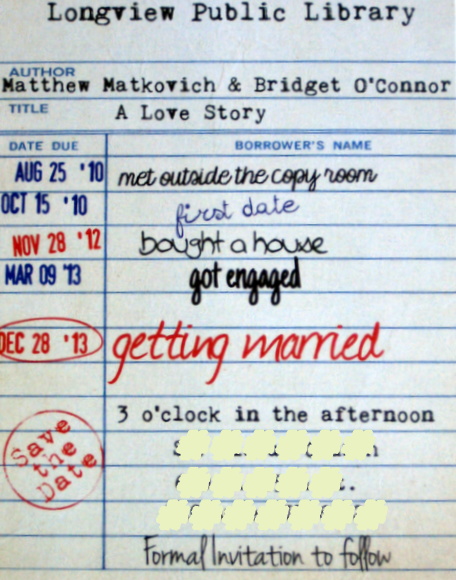 Longview Public Library
AUTHOR
Matthew Matkovich & Bridget O'Connor
TITLE A Love Story
DATE DUE BORROWER'S NAME
AUG 25 '10 met outside the copy room
OCT 15 '10 first date
NOV 28 '12 bought a house
MAR 09 '13 got engaged
DEC 28 '13 getting married
3 o'clock in the afternoon
Save
the
Date
Formal Invitation to follow